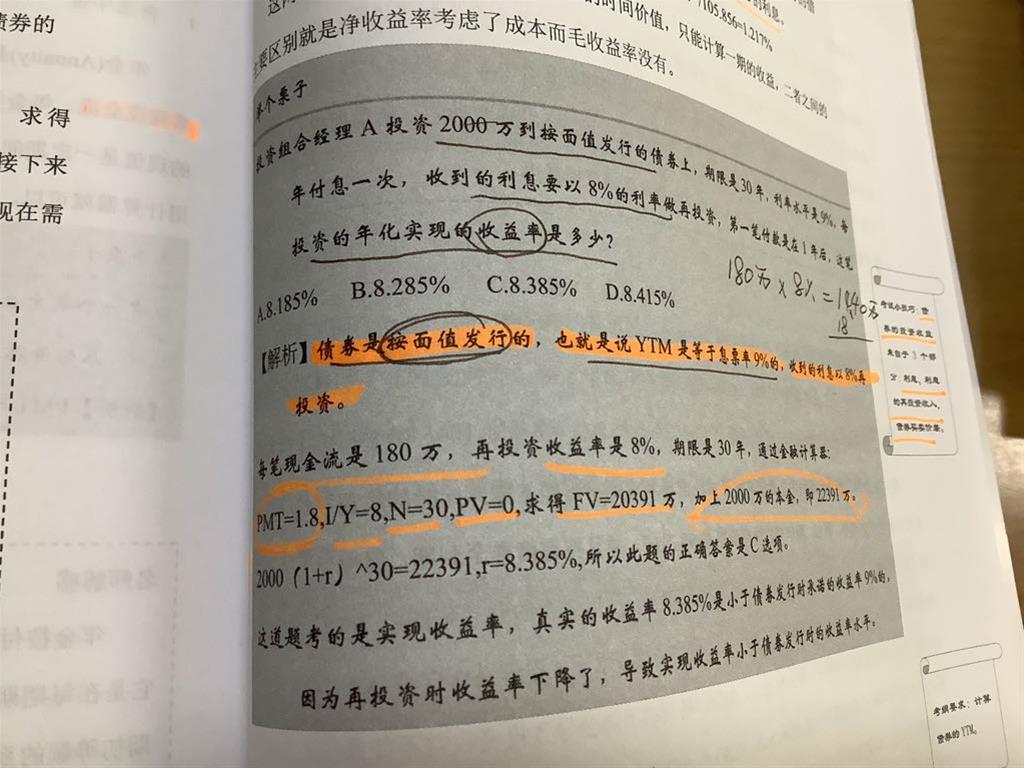 债券的
求得
接下来
现在需
/105.856=1.217%
的时间价值，只能计算一期的收益，二者之间的
主要区别就是净收益率考虑了成本而毛收益率没有。
举个栗子
投资组合经理 A 投资 2000 万到按面值发行的债券上，期限是30年，利率水平是9%，每
年付息一次，收到的利息要以 8%的利率做再投资，第一笔付款是在1年后，这笔
投资的年化实现的收益率是多少？
A.8.185% B.8.285% C.8.385% D.8.415%
180万×8%=14.40万
18
【解析】债券是按面值发行的，也就是说 YTM 是等于息票率 9%的，收到的利息以8%再
投资。
每笔现金流是 180 万，再投资收益率是 8%，期限是 30 年，通过金融计算器：
PMT=1.8,I/Y=8,N=30,PV=0,求得 FV=20391 万，加上 2000 万的本金，即 22391 万。
2000（1+r）^30=22391,r=8.385%,所以此题的正确答案是 C 选项。
这道题考的是实现收益率，真实的收益率 8.385%是小于债券发行时承诺的收益率 9%的，
因为再投资时收益率下降了，导致实现收益率小于债券发行时的收益率水平。
考试小技巧：债
券的投资收益
来自于 3 个部
分：利息，利息
的再投资收入，
债券买卖价差。
考纲要求：计算
债券的 YTM。